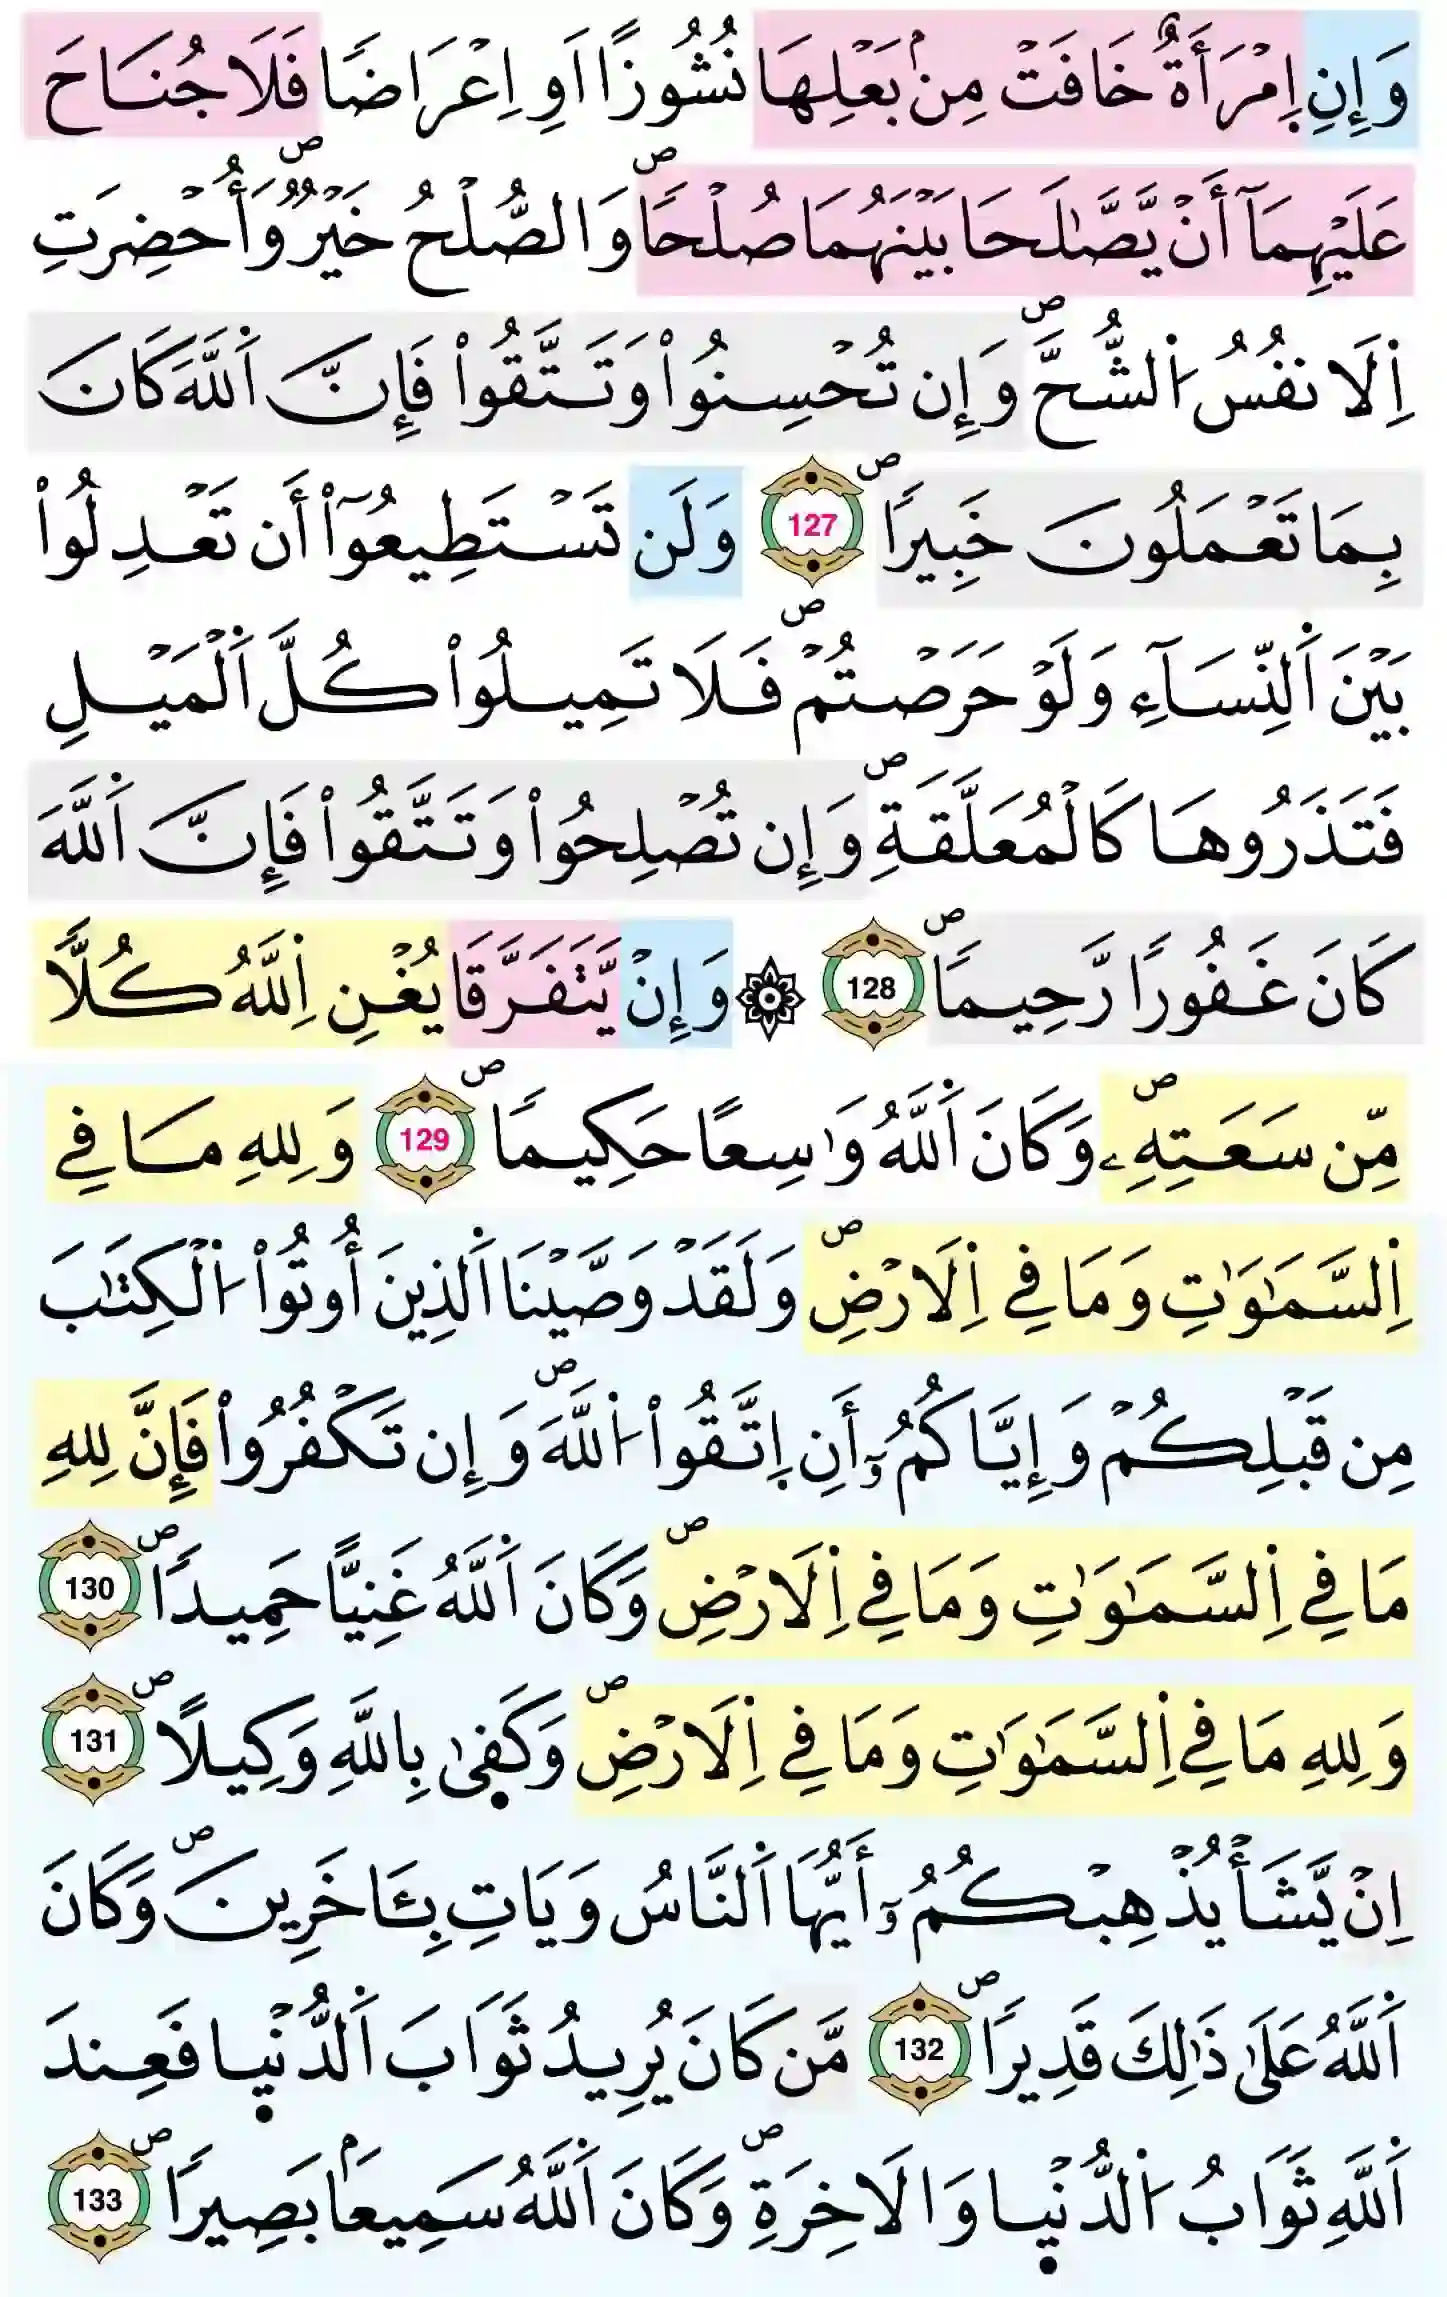 وَإِنِ اِ۪مْرَأَةٌ خَافَتْ مِنۢ بَعْلِهَا نُشُوزًا اَوِ اِعْرَاضًا فَلَا جُنَاحَ
عَلَيْهِمَآ أَنْ يَّصَّٰلَحَا بَيْنَهُمَا صُلْحًاۖ وَالصُّلْحُ خَيْرٌۖ وَأُحْضِرَتِ
اِ۬لَانفُسُ اُ۬لشُّحَّۖ وَإِن تُحْسِنُواْ وَتَتَّقُواْ فَإِنَّ اَ۬للَّهَ كَانَ
بِمَا تَعْمَلُونَ خَبِيرًاۖ 127 وَلَن تَسْتَطِيعُوٓاْ أَن تَعْدِلُواْ
بَيْنَ اَ۬لنِّسَآءِ وَلَوْ حَرَصْتُمْۖ فَلَا تَمِيلُواْ كُلَّ اَ۬لْمَيْلِ
فَتَذَرُوهَا كَالْمُعَلَّقَةِۖ وَإِن تُصْلِحُواْ وَتَتَّقُواْ فَإِنَّ اَ۬للَّهَ
كَانَ غَفُورًا رَّحِيمًاۖ 128 ۞ وَإِنْ يَّتَفَرَّقَا يُغْنِ اِ۬للَّهُ كُلًّا
مِّن سَعَتِهِۦۖ وَكَانَ اَ۬للَّهُ وَٰسِعًا حَكِيمًاۖ 129 وَلِلهِ مَا فِي
اِ۬لسَّمَٰوَٰتِ وَمَا فِي اِ۬لَارْضِۖ وَلَقَدْ وَصَّيْنَا اَ۬لذِينَ أُوتُواْ اُ۬لْكِتَٰبَ
مِن قَبْلِكُمْ وَإِيَّاكُمُۥٓ أَنِ اِ۪تَّقُواْ اُ۬للَّهَۖ وَإِن تَكْفُرُواْ فَإِنَّ لِلهِ
مَا فِي اِ۬لسَّمَٰوَٰتِ وَمَا فِي اِ۬لَارْضِۖ وَكَانَ اَ۬للَّهُ غَنِيًّا حَمِيدًاۖ 130
وَلِلهِ مَا فِي اِ۬لسَّمَٰوَٰتِ وَمَا فِي اِ۬لَارْضِۖ وَكَف۪ىٰ بِاللَّهِ وَكِيلًاۖ 131
اِنْ يَّشَأْ يُذْهِبْكُمُۥٓ أَيُّهَا اَ۬لنَّاسُ وَيَاتِ بِـَٔاخَرِينَۖ وَكَانَ
اَ۬للَّهُ عَلَىٰ ذَٰلِكَ قَدِيرًاۖ 132 مَّن كَانَ يُرِيدُ ثَوَابَ اَ۬لدُّنْي۪ا فَعِندَ
اَ۬للَّهِ ثَوَابُ اُ۬لدُّنْي۪ا وَالَاخِرَةِۖ وَكَانَ اَ۬للَّهُ سَمِيعَۢا بَصِيرًاۖ 133